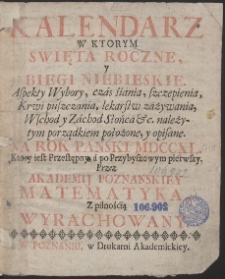 KALENDARZ
W KTORYM
SWIĘTA ROCZNE,
Y
BIEGI NIEBIESKIE.
Aspekty Wybory, czás śiania, szczepienia,
Krwi puszczania, lekarstw záżywania,
Wschod y Záchod Słońca &c. należy-
tym porządkiem położone, y opisane.
NA ROK PANSKI MDCCXL.
Ktory iest Przestępny, á po Przybyszowym pierwszy.
Przez
AKADEMII POZNANSKIEY
MATEMATYKA
Z pilnością
106.902
WYRACHOWANY
W POZNANIU, w Drukarni Akademickiey.